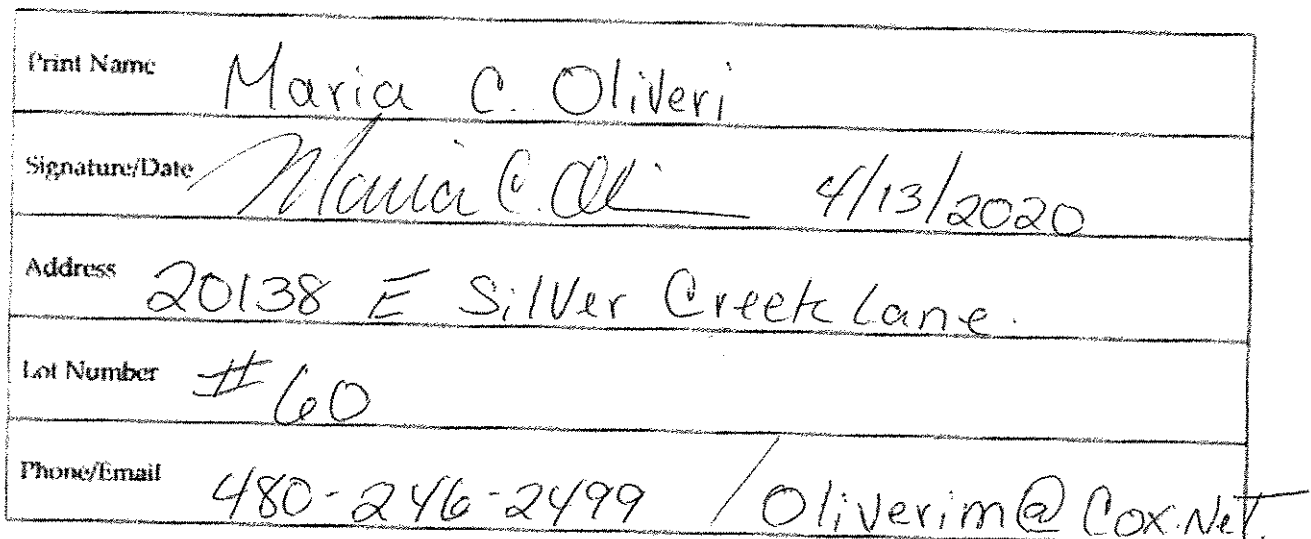 Print Name Maria C. Oliveri
Signature/Date Maria C. Oli 4/13/2020
Address 20138 E Silver Creek Lane.
Lot Number #60
Phone/Email 480-246-2499 / Oliverim@Cox.Net.